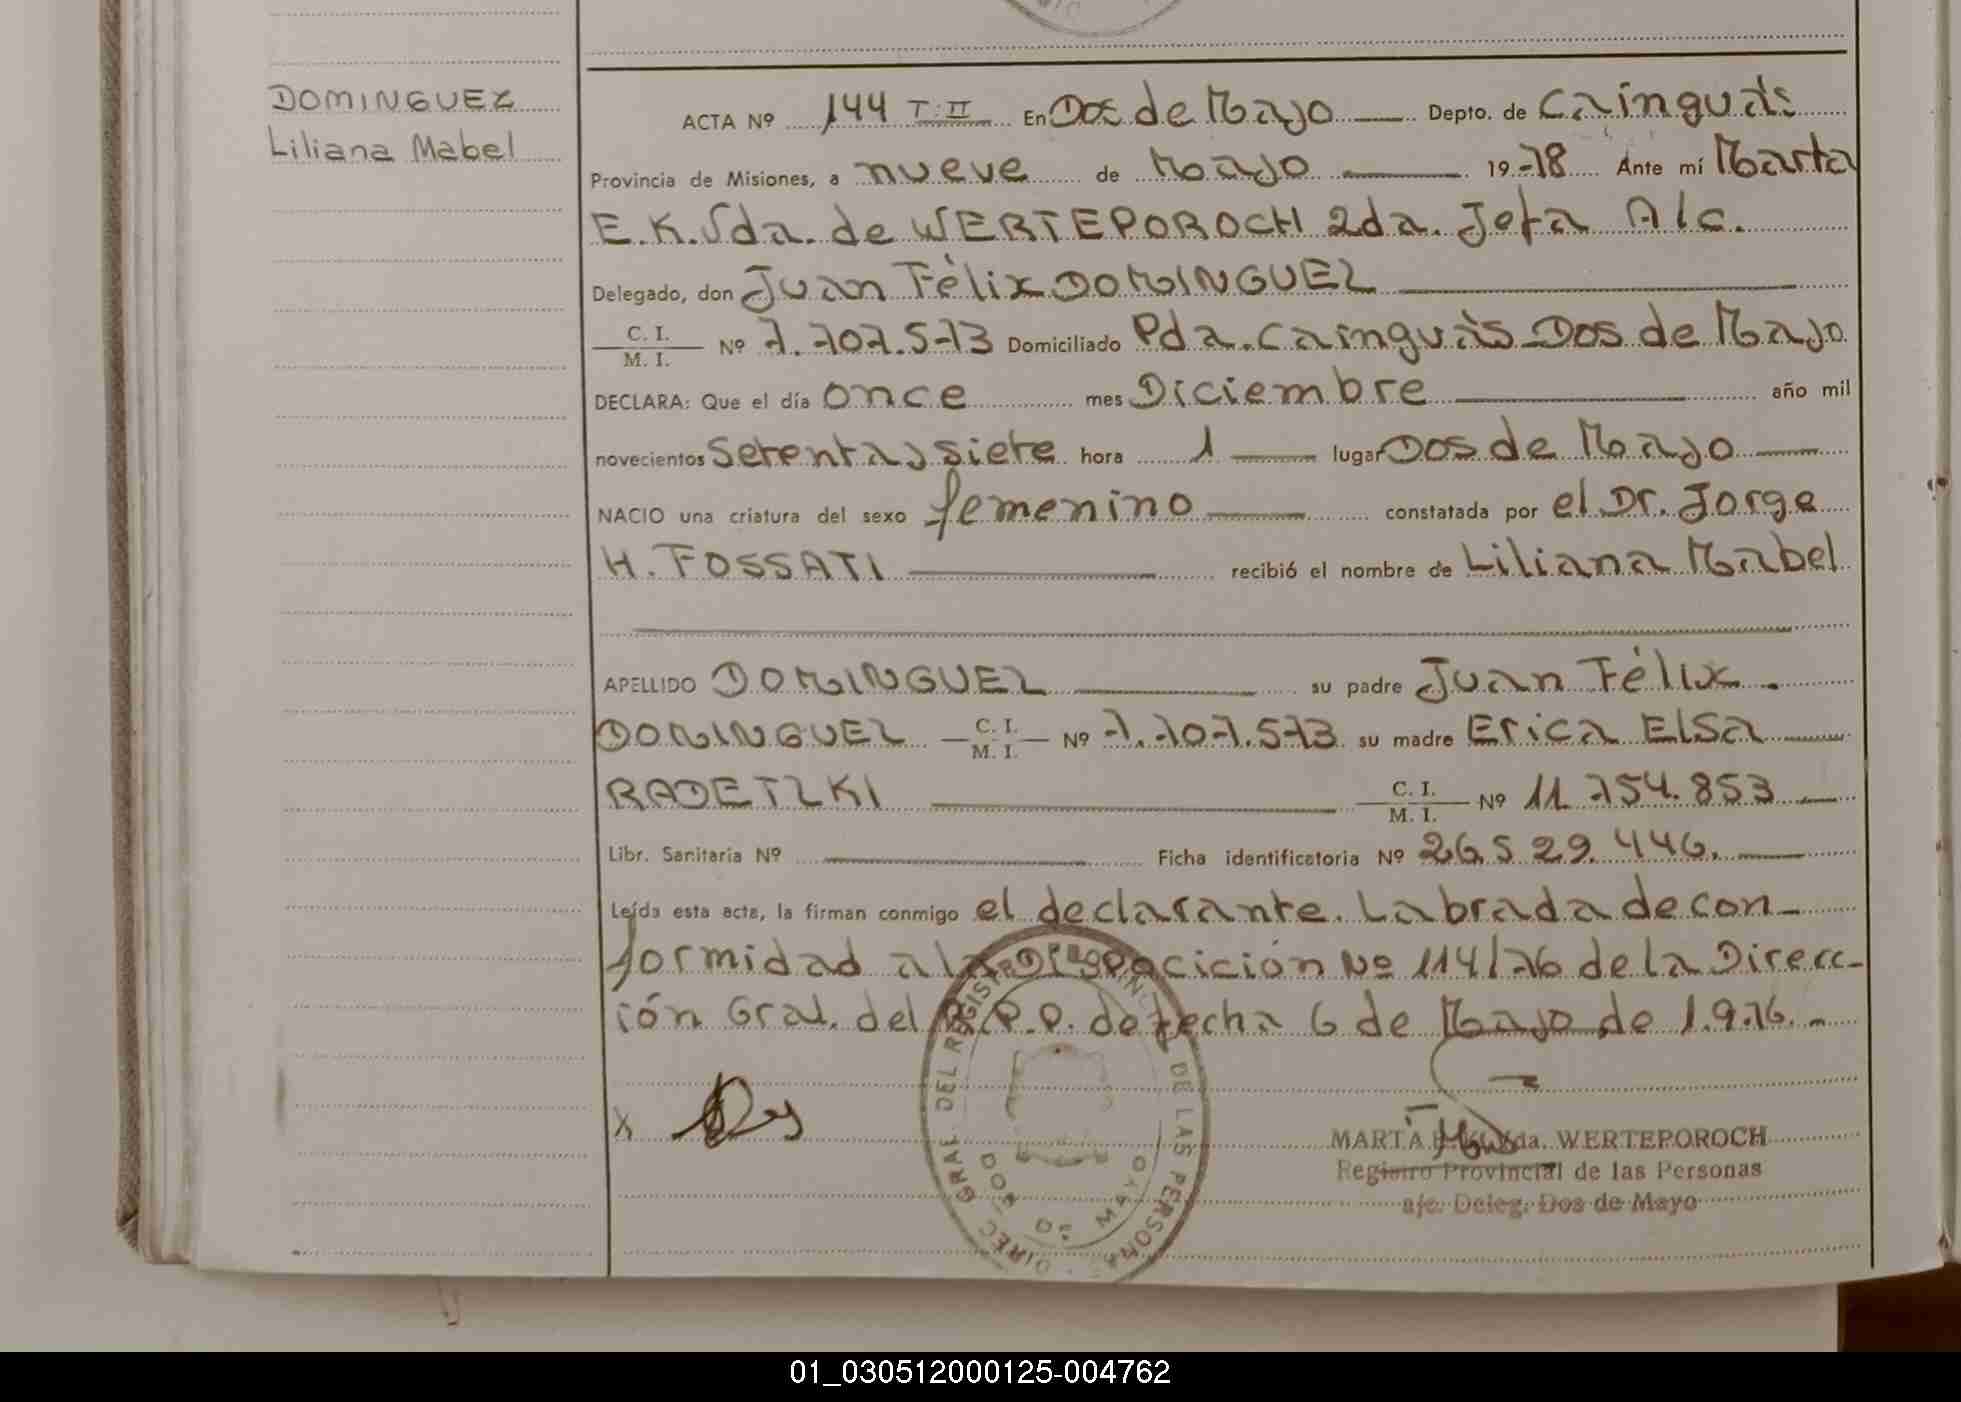 DOMINGUEZ
Liliana Mabel
ACTA Nº 144 T: II En Dos de Mayo Depto. de Cainguás
Provincia de Misiones, a nueve de Mayo 19 78 Ante mí Marta
E. K. Vda. de WERTEPOROCH 2da. Jefa A/c.
Delegado, don Juan Félix DOMINGUEZ
C. I.
M. I. Nº 7.707.573 Domiciliado Pda. Cainguás Dos de Mayo.
DECLARA: Que el día once mes Diciembre año mil
novecientos Setenta y siete hora 1 lugar Dos de Mayo
NACIO una criatura del sexo femenino constatada por el Dr. Jorge
H. FOSSATI recibió el nombre de Liliana Mabel
APELLIDO DOMINGUEZ su padre Juan Félix
DOMINGUEZ C. I. M. I. Nº 7.707.573 su madre Erica Elsa
RADETZKI C. I. M. I. Nº 11.754.853
Libr. Sanitaria Nº Ficha identificatoria Nº 26.529.446.
Leída esta acta, la firman conmigo el declarante. Labrada de con-
formidad a la Dispocición Nº 114/76 de la Direcc-
ión Gral. del R.P.P. de fecha 6 de Mayo de 1.976.-
X
DIREC. GRAL. DEL REGISTRO PROVINCIAL DE LAS PERSONAS
DOS DE MAYO
MARTA E. K. Vda. WERTEPOROCH
Registro Provincial de las Personas
a/c. Deleg. Dos de Mayo
01_030512000125-004762